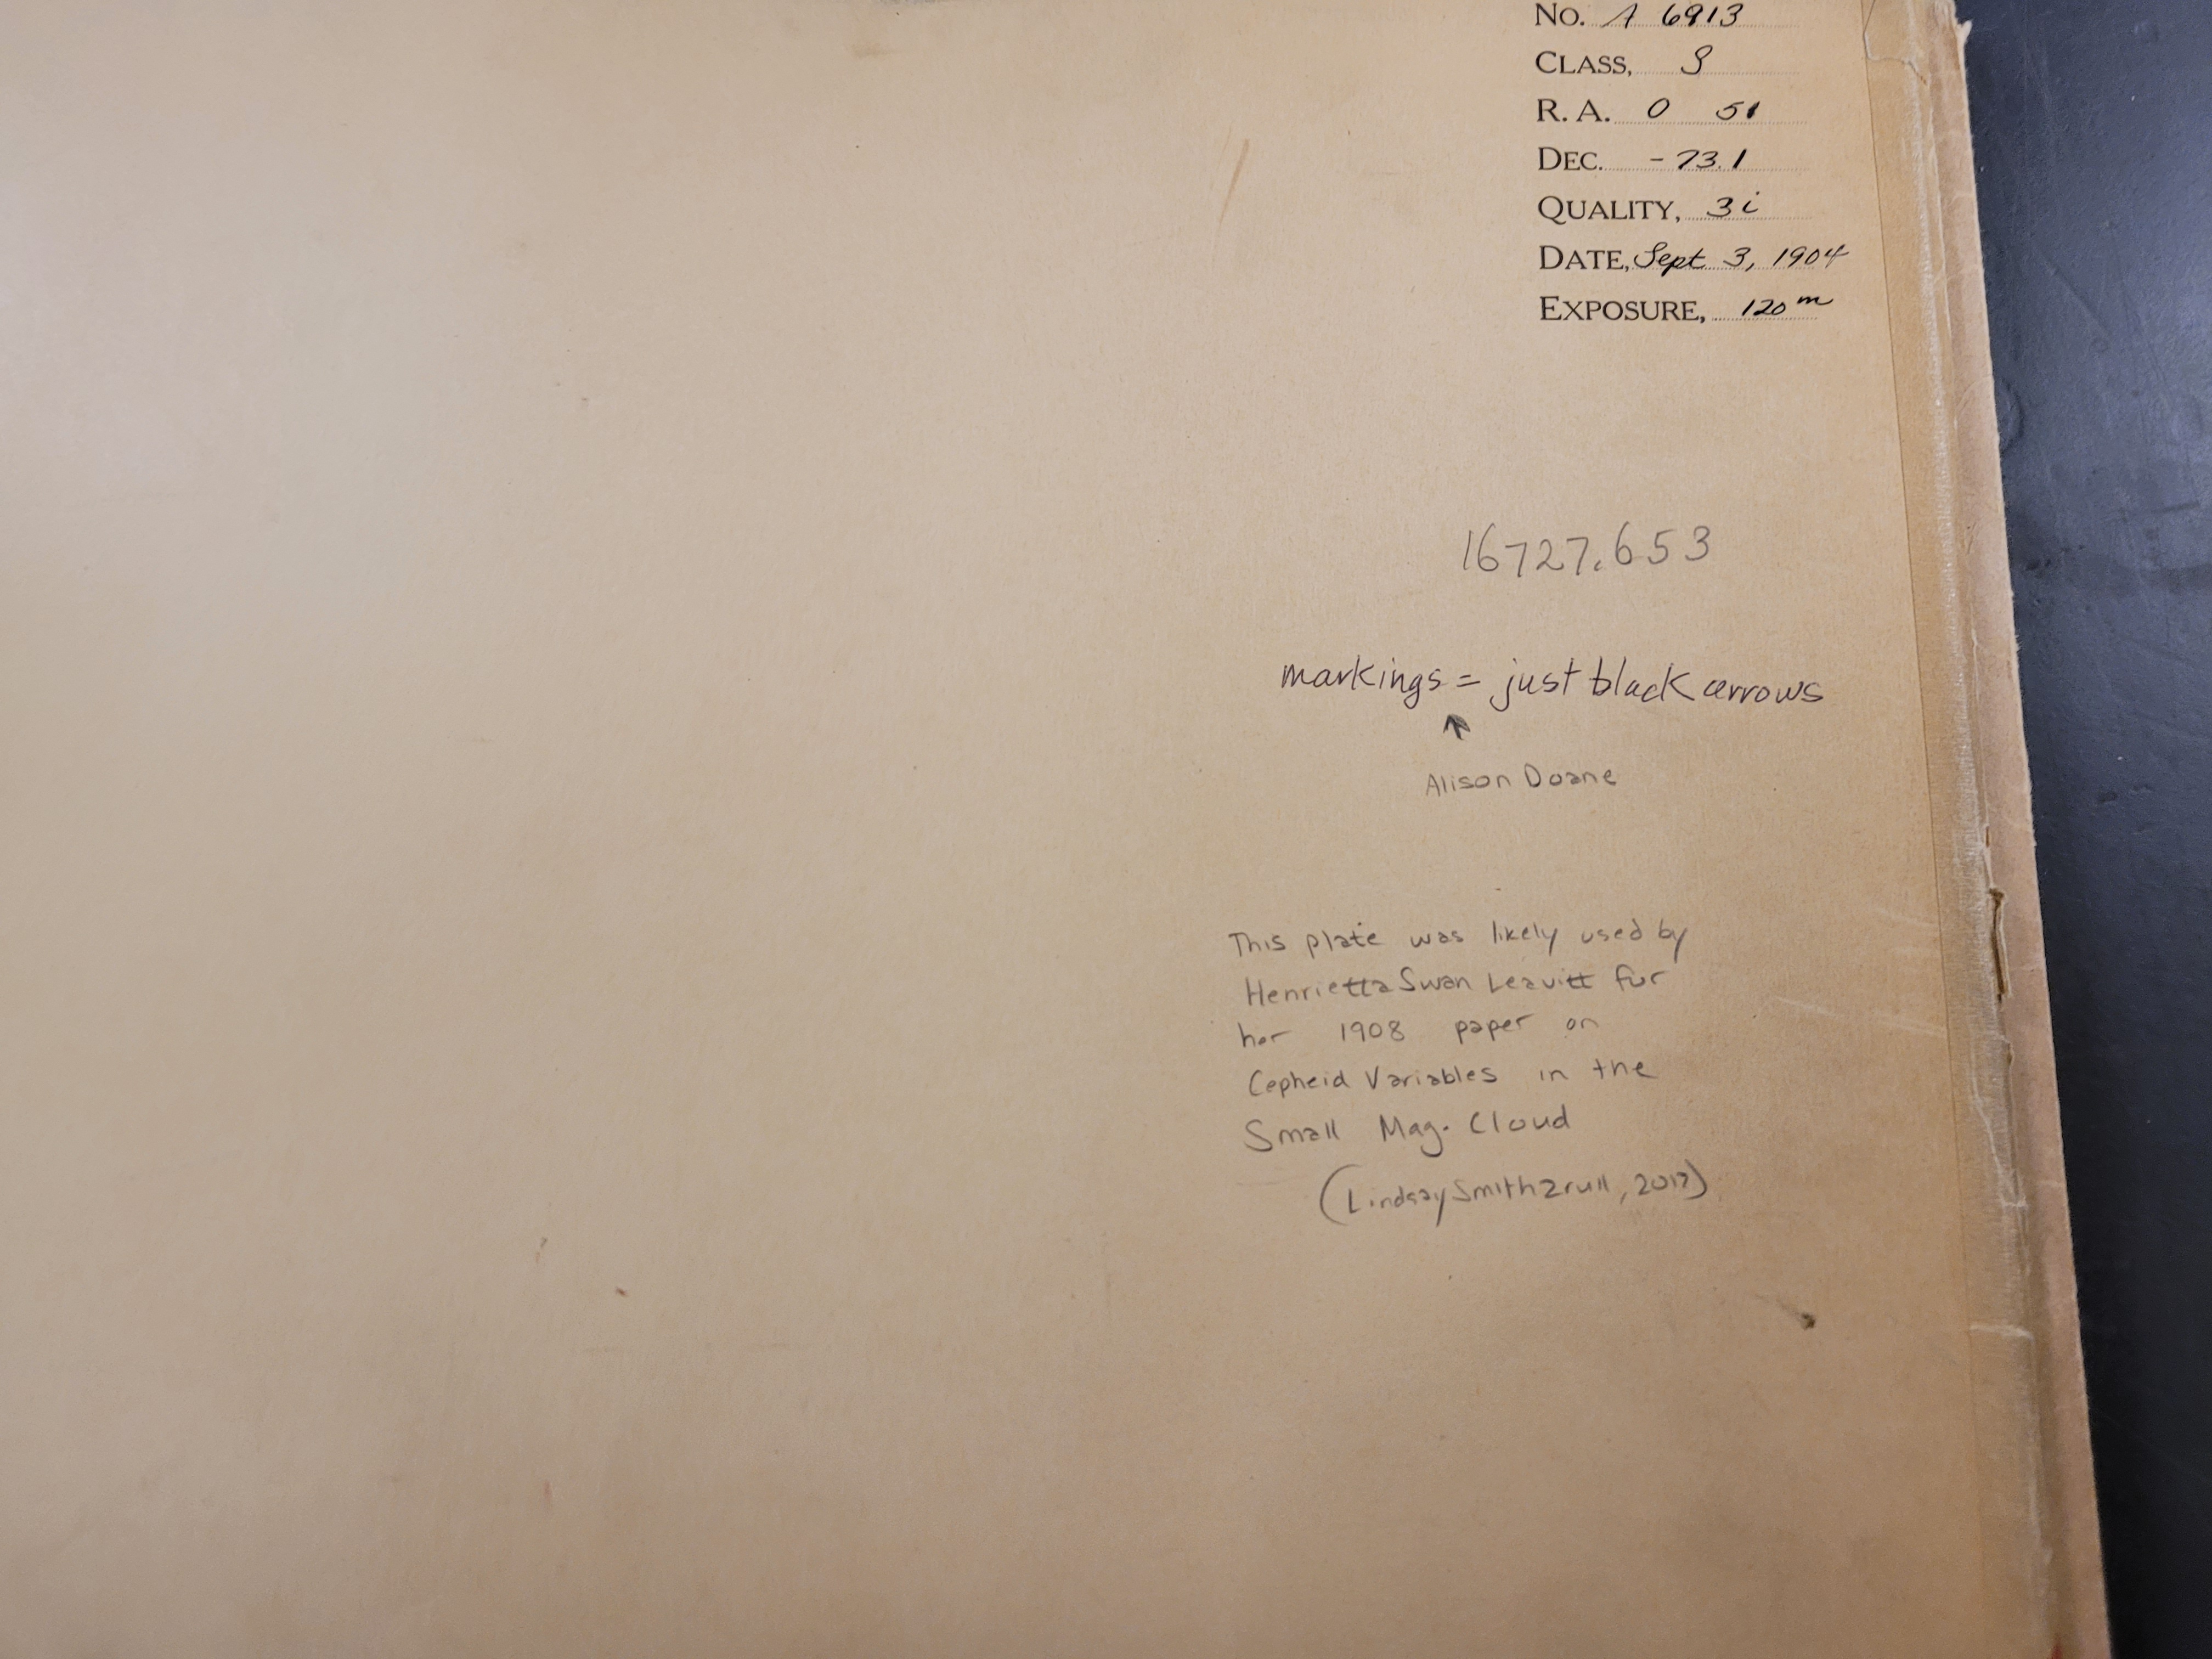 No. A 6913
CLASS, S
R. A. 0 51
DEC. -73.1
QUALITY, 3i
DATE, Sept 3, 1904
EXPOSURE, 120 m
16727.653
markings = just black arrows
Alison Doane
This plate was likely used by
Henrietta Swan Leavitt for
her 1908 paper on
Cepheid Variables in the
Small Mag. Cloud
(Lindsay Smith Zrull, 2017)